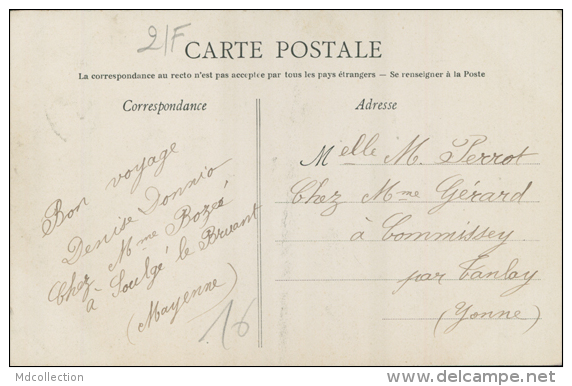 2/F
CARTE POSTALE
La correspondance au recto n'est pas acceptée par tous les pays étrangers — Se renseigner à la Poste
Correspondance
Adresse
Bon voyage
Denise Donnio
Chez Mme Bozeé
à Soulgé le Bruant
(Mayenne)
16
Melle M. Perrot
Chez Mme Gérard
à Commissey
par Tanlay
(Yonne)
Mdcollection
www.delcampe.net